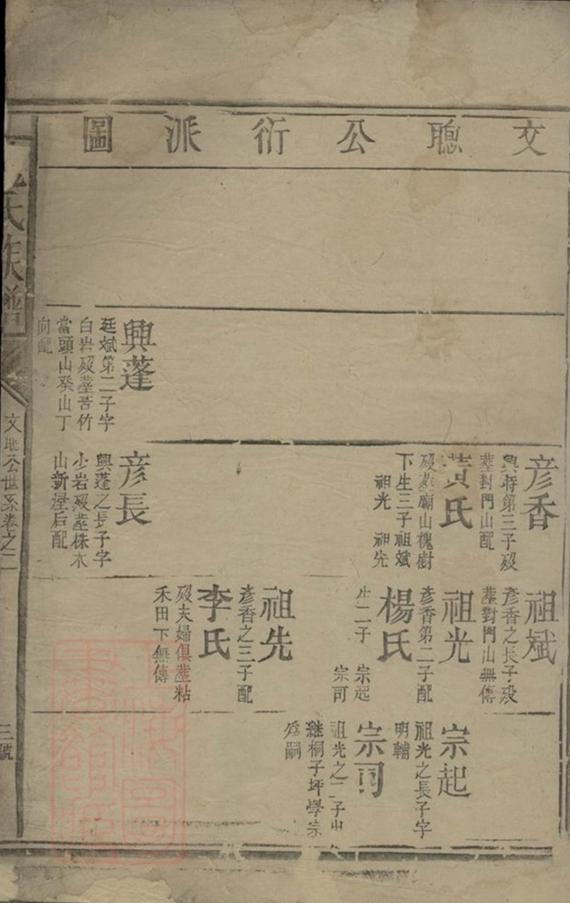 文聰公衍派圖
彥香
興梓第三子殁
塟對門山配
黃氏
殁塟廟山槐樹
下生三子祖斌
祖光 祖先
祖斌
彥香之長子殁
塟對門山無傳
祖光
彥香第二子配
楊氏
生二子 宗起
宗司
宗起
祖光之長子字
明輔
宗司
祖光之二子出
継桐子坪學宗
為嗣
祖先
彥香之三子配
李氏
殁夫婦俱塟粘
禾田下無傳
興蓬
廷斌第二子字
白岩殁塟苦竹
當頭山癸山丁
向配
彥長
興蓬之長子字
少岩殁塟株木
山新屋后配
氏族譜
文聰公世系卷之二
三號